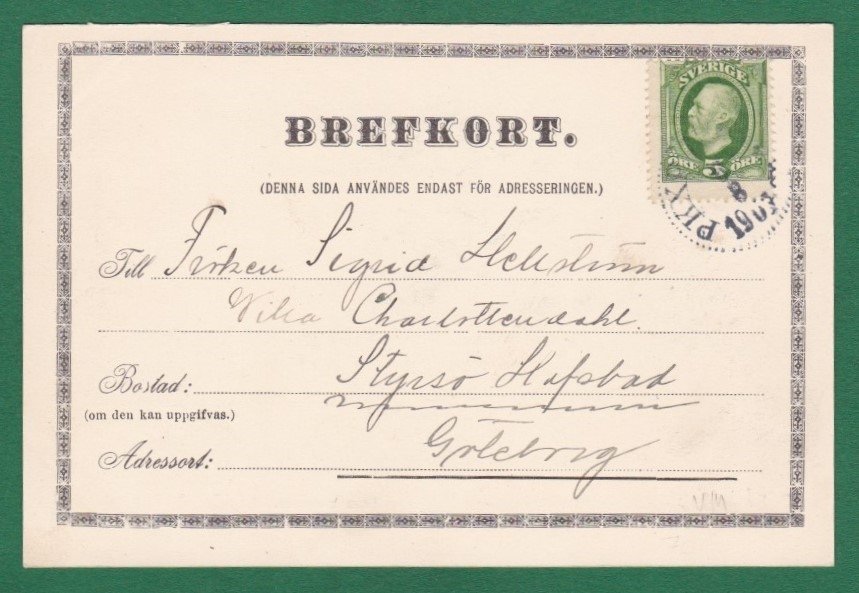 BREFKORT.
SVERIGE
ÖRE 5 ÖRE
(DENNA SIDA ANVÄNDES ENDAST FÖR ADRESSERINGEN.)
PKXP
8
190
Till Fröken Sigrid Hellström
Villa Charlottendahl.
Bostad: Styrsö Hafsbad
(om den kan uppgifvas.)
Göteborg
Adressort: